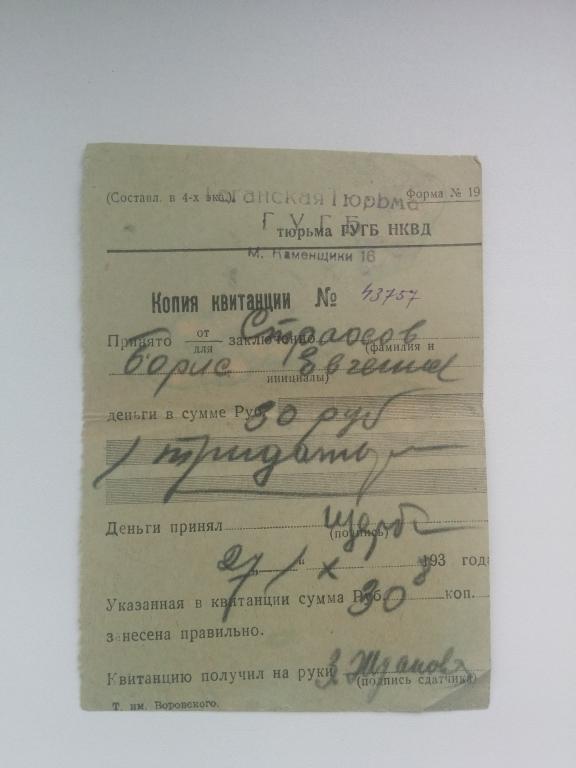 (Составл. в 4-х экз.) Таганская Тюрьма Форма № 19
ГУГБ
тюрьма ГУГБ НКВД
М. Каменщики 16
Копия квитанции № 43757
Принято от/для заключенно
(фамилия и
Борис Евгенив
инициалы)
деньги в сумме Руб. 30 руб
/тридать
Деньги принял Щерб
(подпись)
27/X 1938 года
Указанная в квитанции сумма Руб. 30 коп.
занесена правильно.
Квитанцию получил на руки З. Жданова
(подпись сдатчика)
Т. им. Воровского.